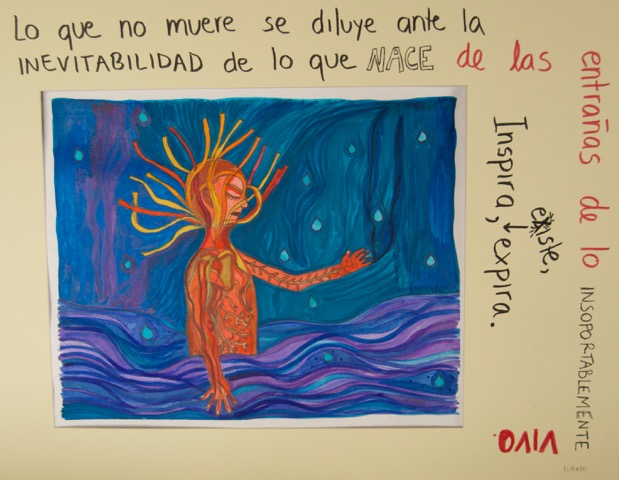 Lo que no muere se diluye ante la
INEVITABILIDAD de lo que NACE de las
entrañas de lo INSOPORTABLEMENTE
VIVO.
Inspira, existe,
expira.